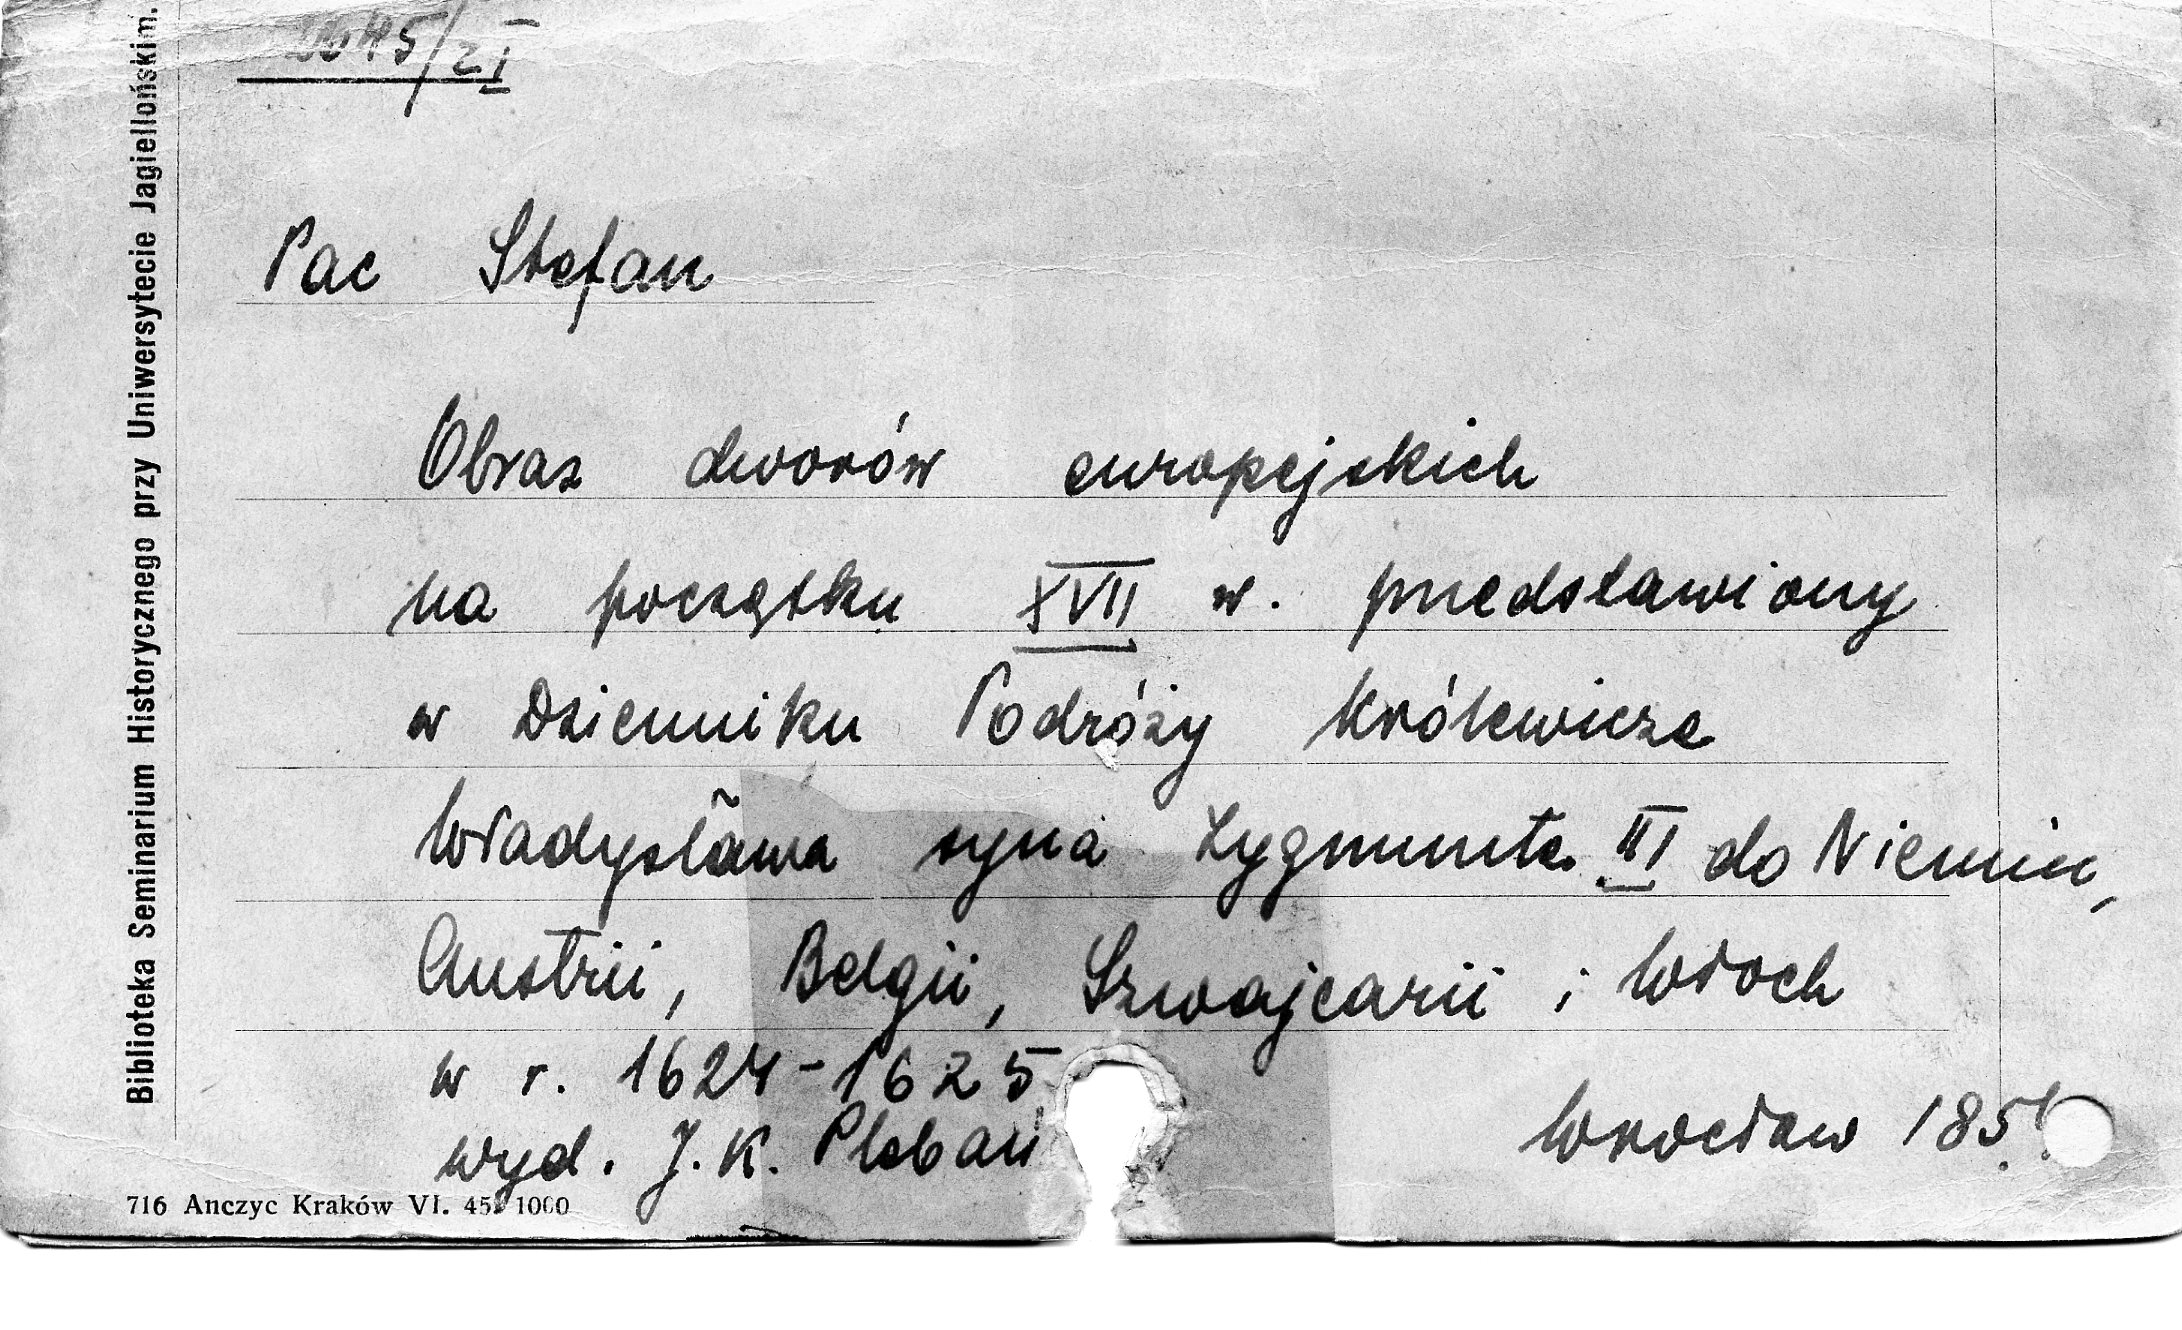 Pac Stefan
Obraz dworów europejskich
na początku XVII w. przedstawiony
w Dzienniku Podróży Królewicza
Władysława syna Zygmunta III do Niemiec,
Austrii, Belgii, Szwajcarii i Włoch
w r. 1624-1625
wyd. J. K. Plebań
Wrocław
Biblioteka Seminarium Historycznego przy Uniwersytecie Jagiellońskim.
716 Anczyc Kraków VI. 45. 1000